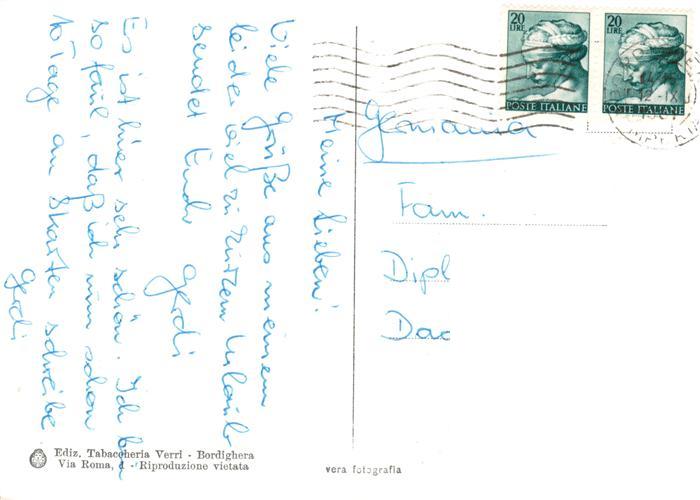 Meine Lieben!
Viele Grüße aus meinem
leider viel zu kurzen Urlaub
sendet Euch
Gerdi
Es ist hier sehr schön. Ich bin
so faul, daß ich nun schon
10 Tage an Karten schreibe
Gerdi
Germania
Fam.
Dipl
Dac
20
LIRE
POSTE ITALIANE
20
LIRE
POSTE ITALIANE
Ediz. Tabaccheria Verri - Bordighera
Via Roma, - Riproduzione vietata
vera fotografia